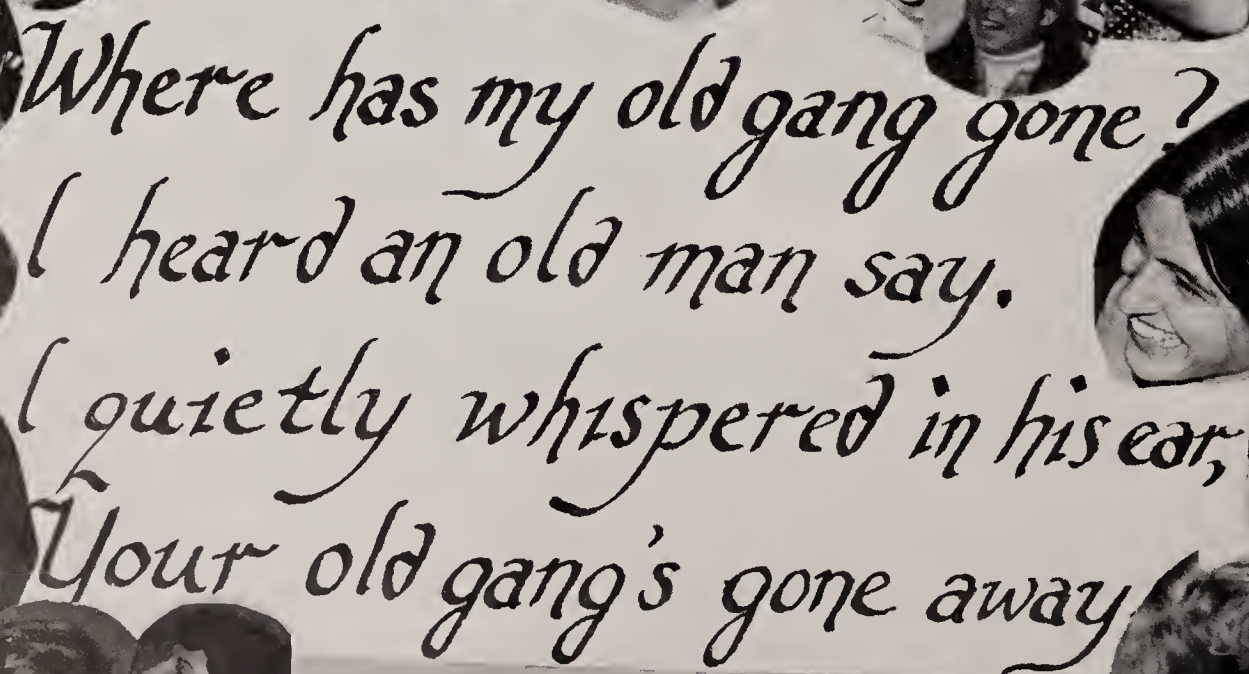 Where has my old gang gone?
I heard an old man say.
I quietly whispered in his ear,
Your old gang's gone away